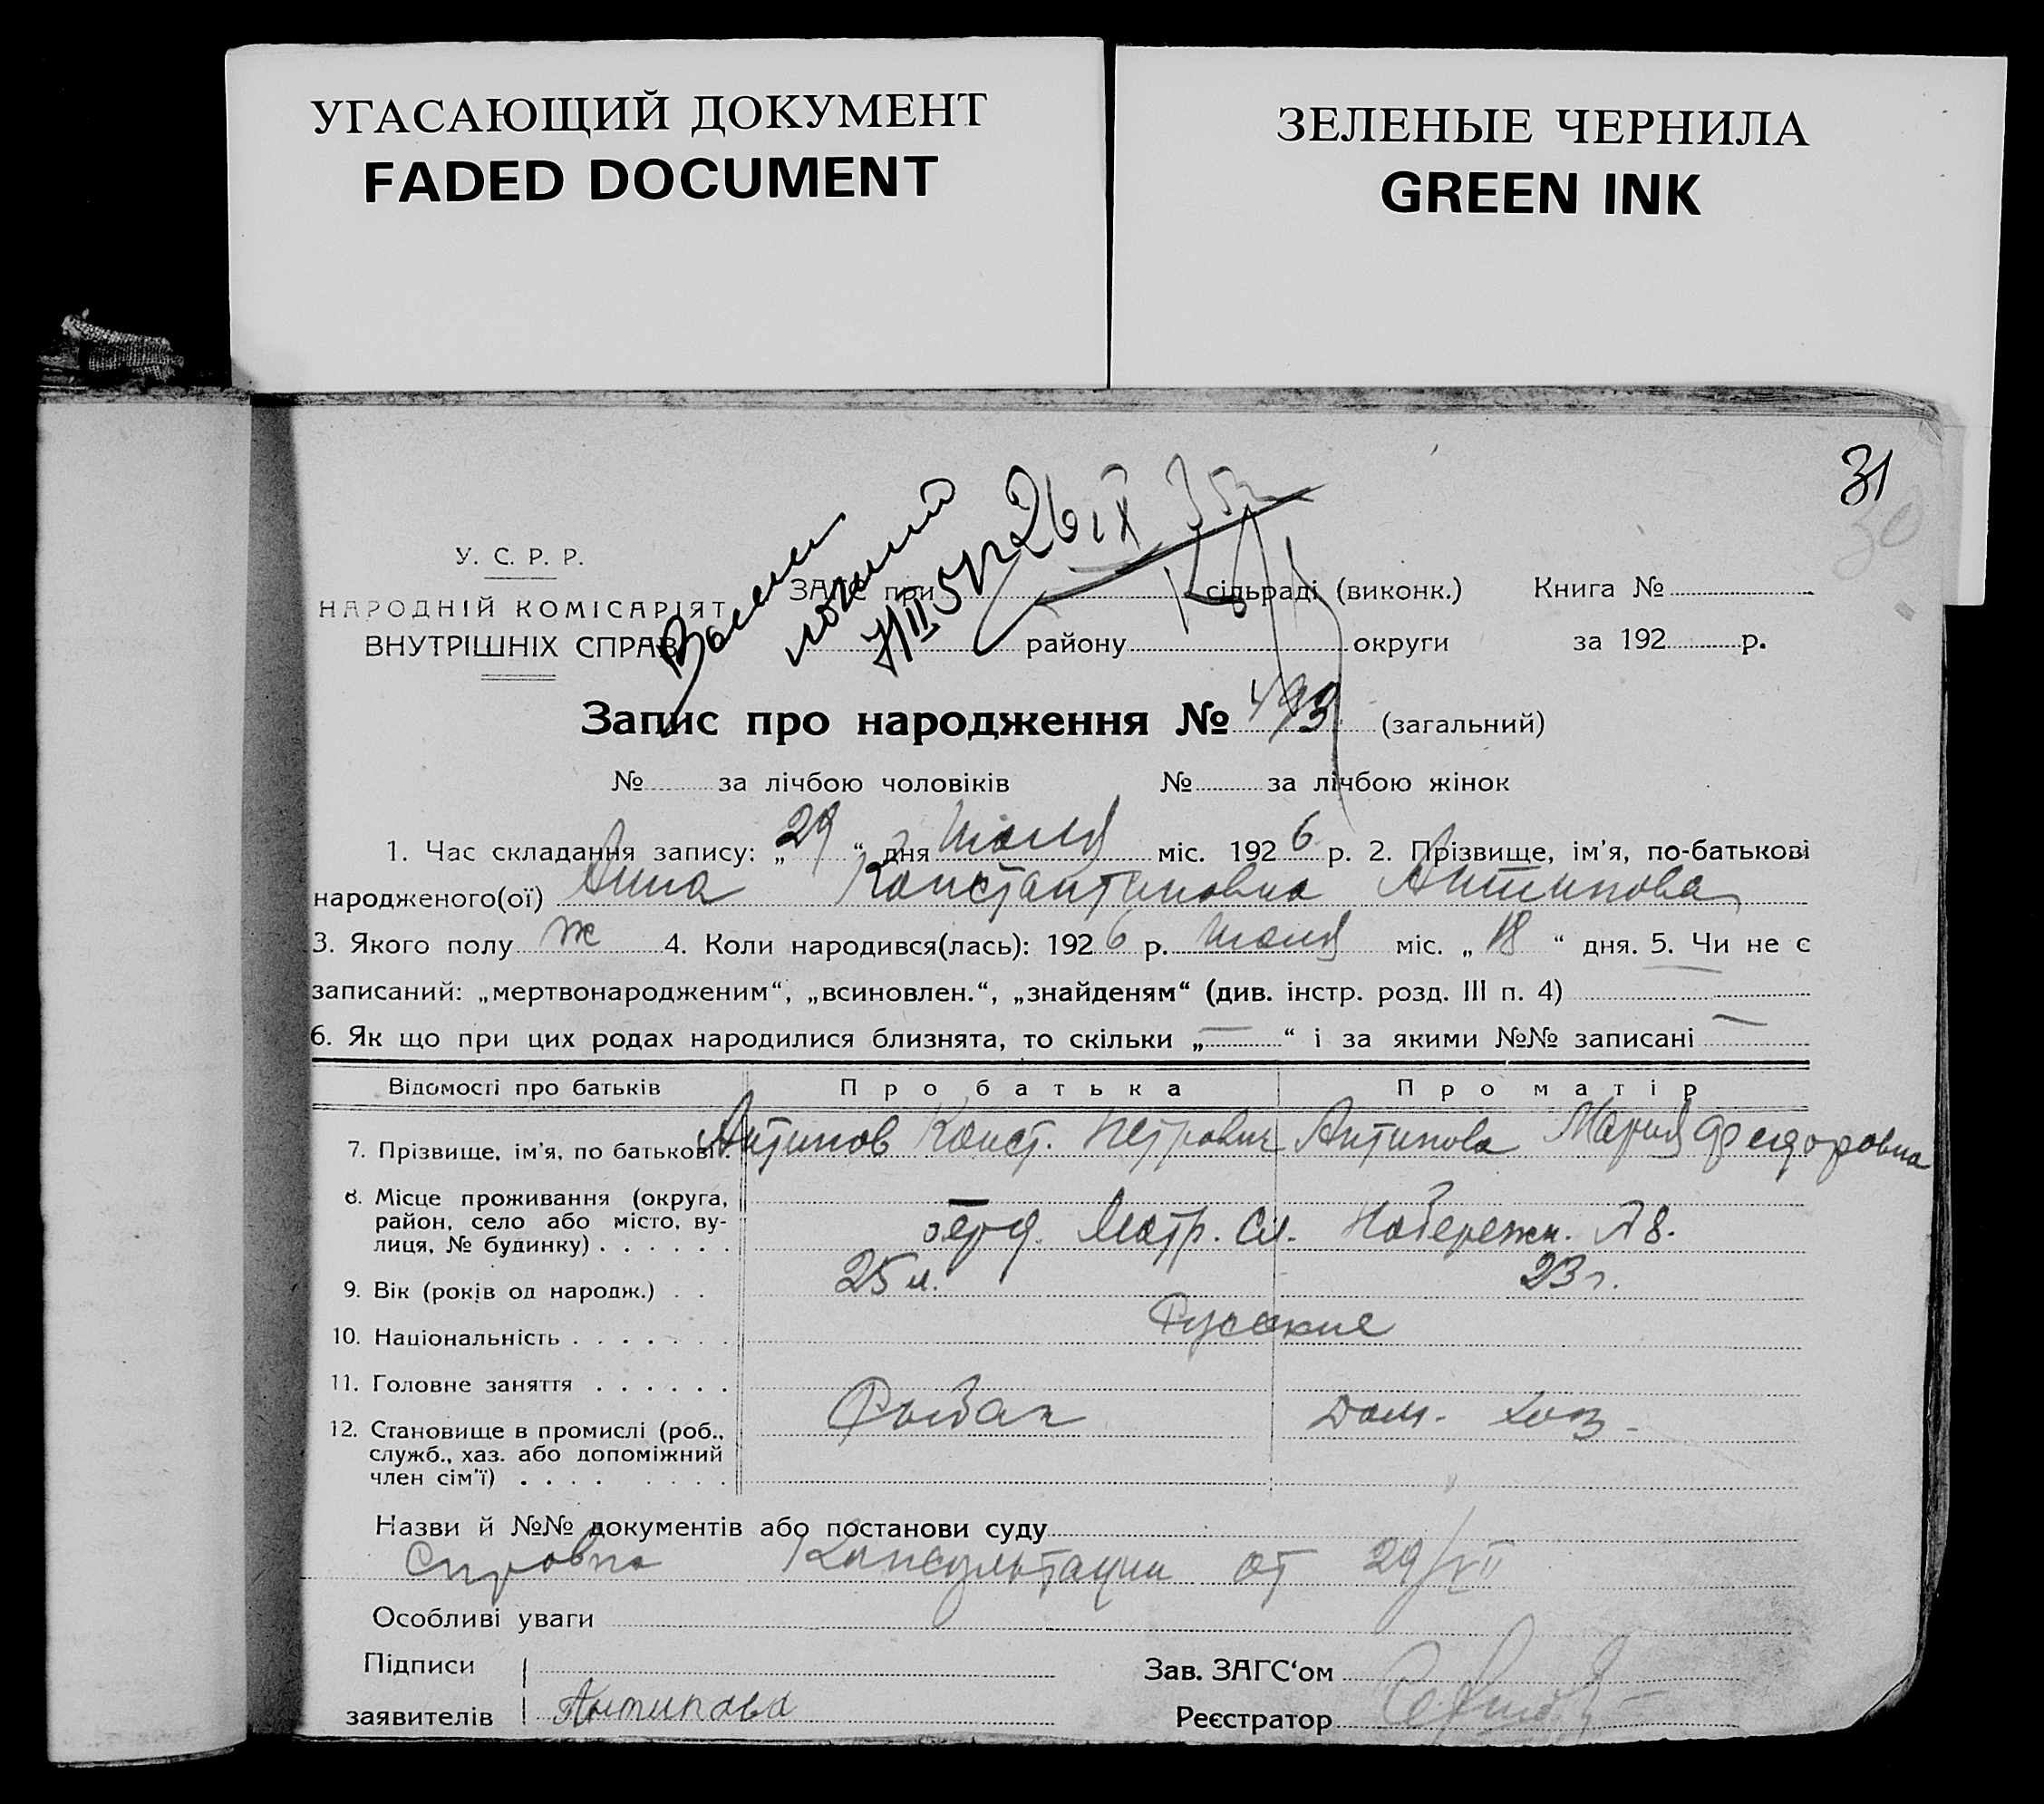 УГАСАЮЩИЙ ДОКУМЕНТ
FADED DOCUMENT
ЗЕЛЕНЫЕ ЧЕРНИЛА
GREEN INK
31
30
У. С. Р. Р.
НАРОДНІЙ КОМІСАРІЯТ
ВНУТРІШНІХ СПРАВ
26 IX 35г
ЗАГС при сільраді (виконк.) Книга №
району округи за 192 р.
Запис про народження № 493 (загальний)
№ за лічбою чоловіків № за лічбою жінок
1. Час складання запису: „29“ дня Июля міс. 1926 р. 2. Прізвище, ім'я, по-батькові
народженого(ої) Анна Константиновна Антипова
3. Якого полу ж 4. Коли народився(лась): 1926 р. Июля міс. „18“ дня. 5. Чи не є
записаний: „мертвонародженим“, „всиновлен.“, „знайденям“ (див. інстр. розд. III п. 4)
6. Як що при цих родах народилися близнята, то скільки „—“ і за якими №№ записані —
Відомості про батьків Про батька Про матір
7. Прізвище, ім'я, по батькові Антипов Конст. Петрович Антипова Мария Федоровна
8. Місце проживання (округа,
район, село або місто, ву-
лиця, № будинку) . . . . . . Берд. Матр. Сл. Набережн. 78.
9. Вік (років од народж.) . . 25 л. 23 г.
10. Національність . . . . . . . Русские
11. Головне заняття . . . . . . Рыбак Дом. хоз.
12. Становище в промислі (роб.,
служб., хаз. або допоміжний
член сім'ї) . . . . . . . .
Назви й №№ документів або постанови суду
Справка Консультации от 29/VII
Особливі уваги
Підписи Зав. ЗАГС‘ом
заявителів Антипова Реєстратор